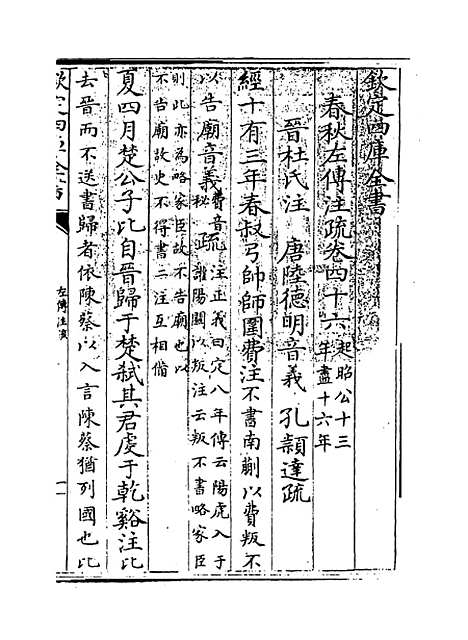 欽定四庫全書
春秋左傳注疏卷四十六起昭公十三
年盡十六年
晉杜氏注 唐陸德明音義 孔穎達疏
經十有三年春叔弓帥師圍費注不書南蒯以費叛不
以告廟音義費音
秘疏注正義曰定八年傳云陽虎入于
讙陽關以叛注云叛不書略家臣
則此亦為略家臣故不告廟也以
不告廟故史不得書二注互相備
夏四月楚公子比自晉歸于楚弒其君虔于乾谿注比
去晉而不送書歸者依陳蔡以入言陳蔡猶列國也比
欽定四庫全書
左傳注疏
一